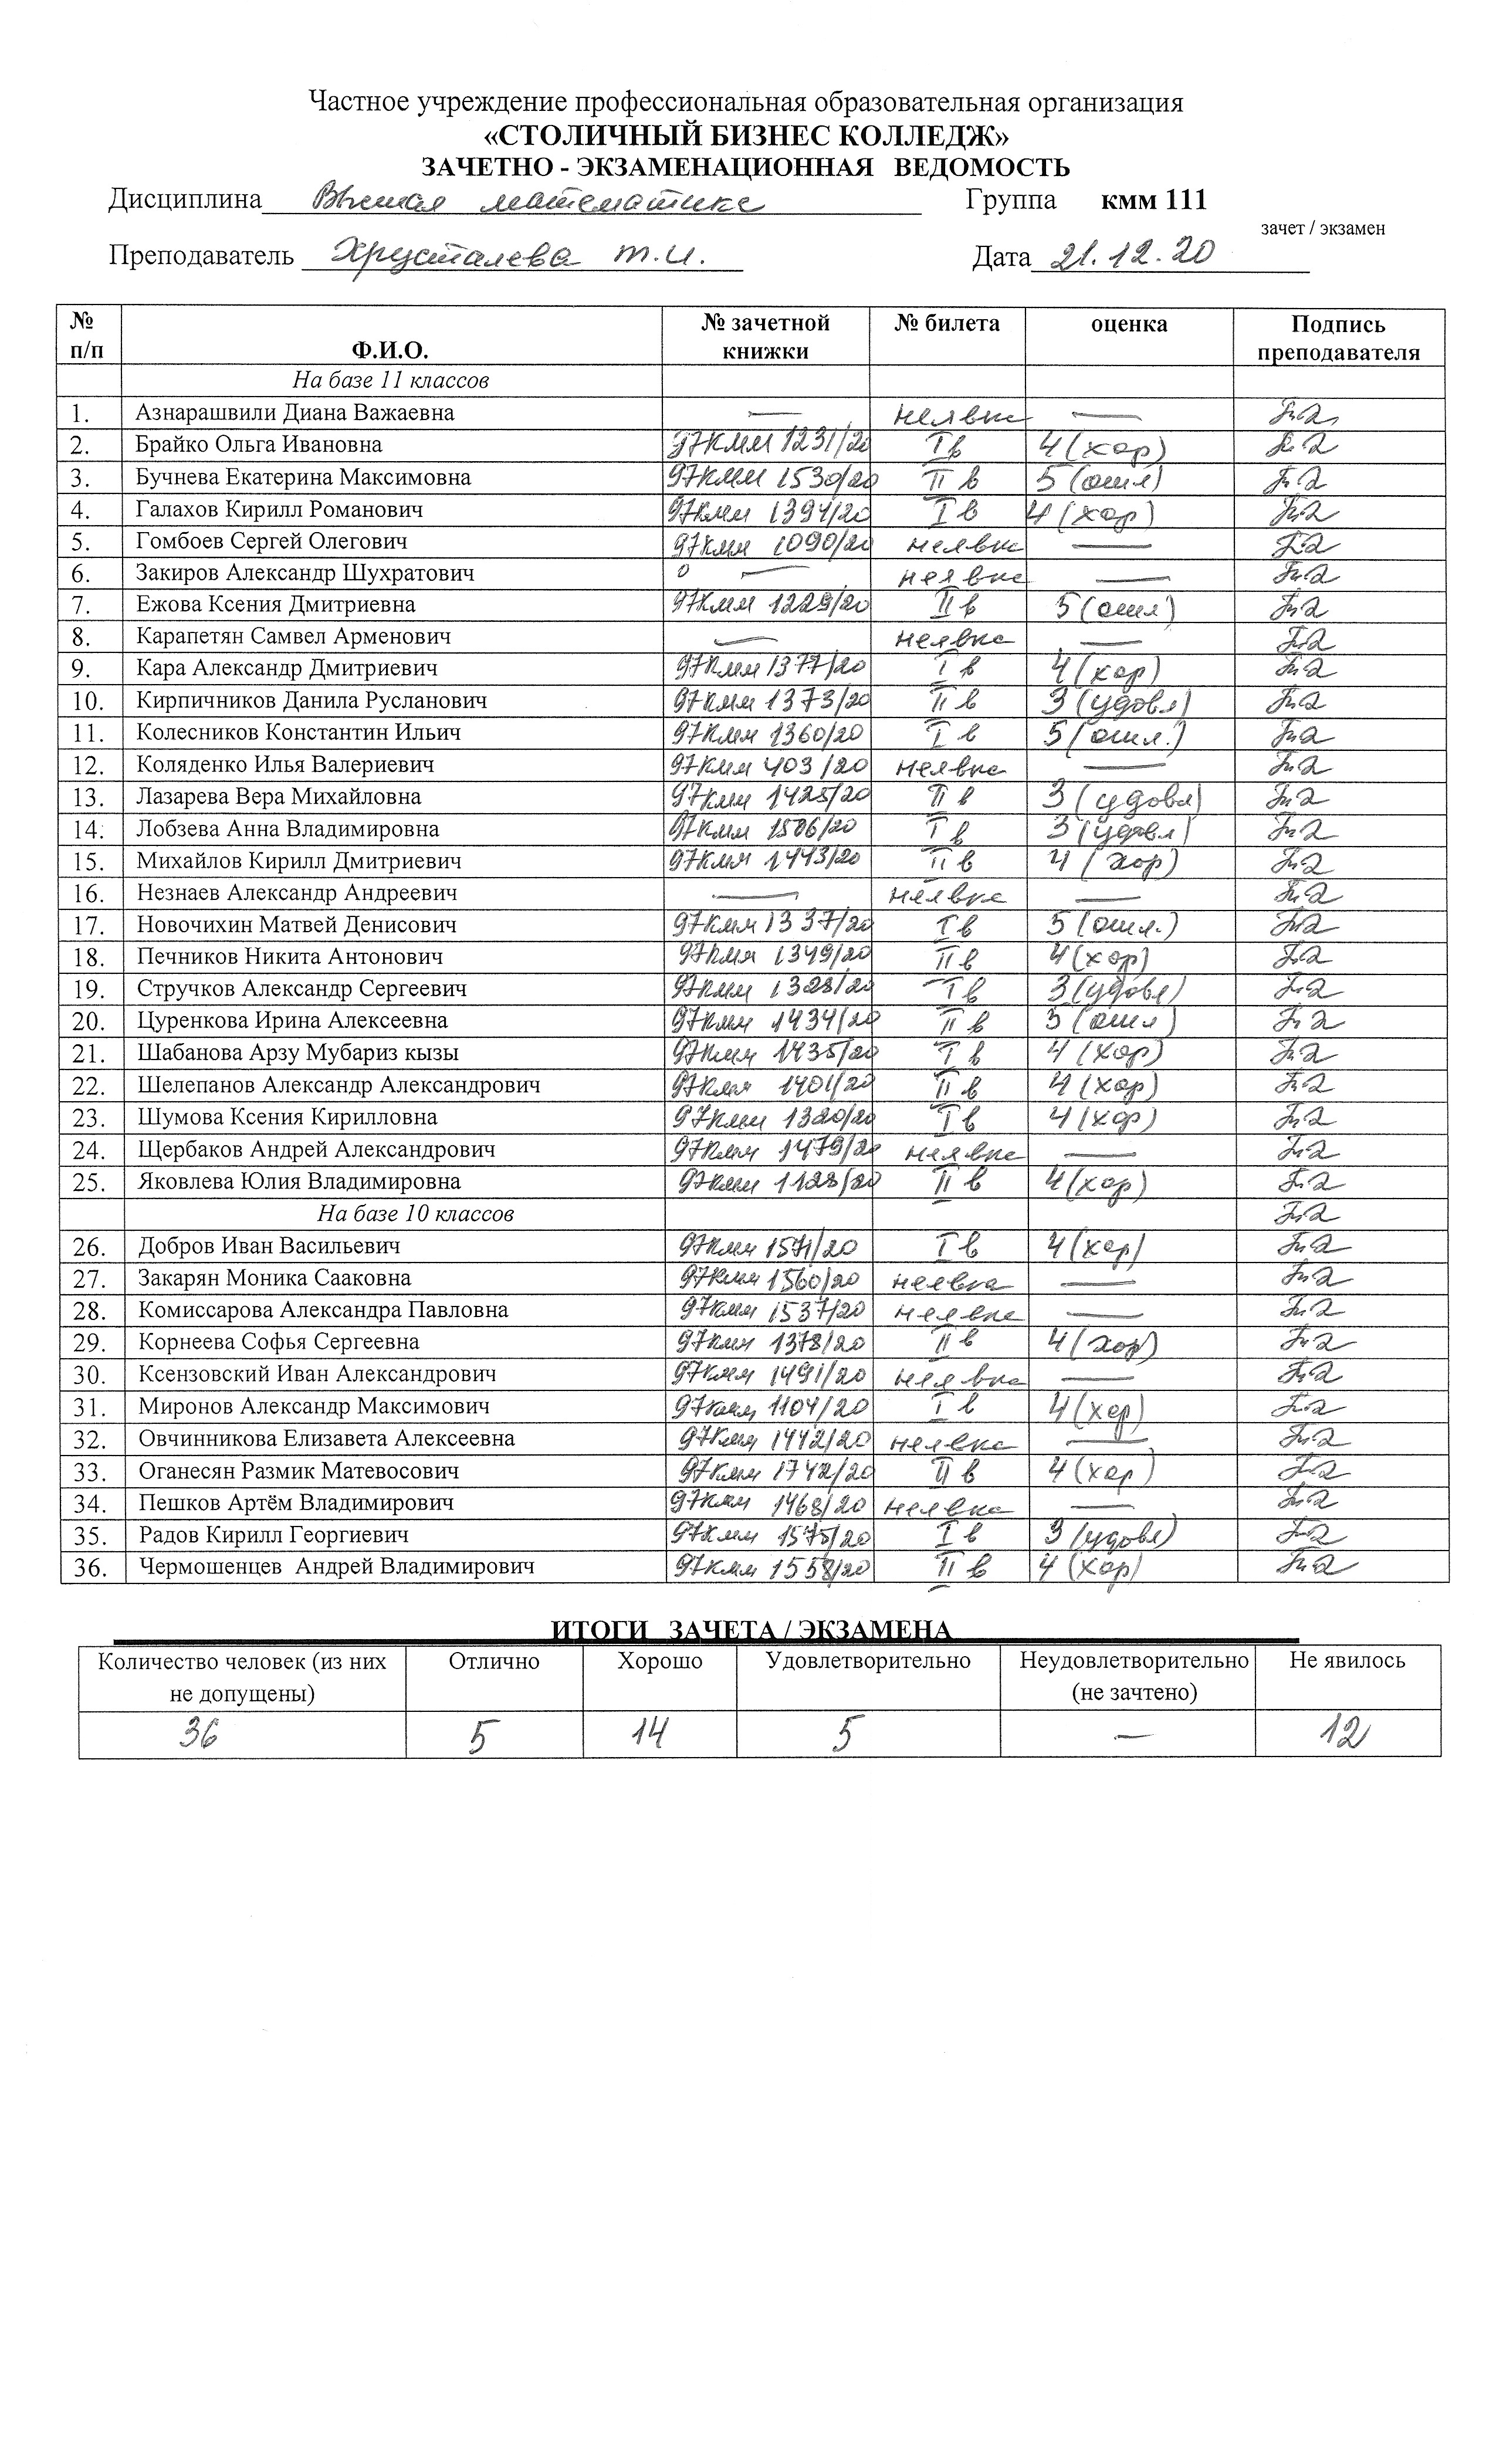 Частное учреждение профессиональная образовательная организация
«СТОЛИЧНЫЙ БИЗНЕС КОЛЛЕДЖ»
ЗАЧЕТНО - ЭКЗАМЕНАЦИОННАЯ ВЕДОМОСТЬ
Дисциплина Высшая математика Группа кмм 111
зачет / экзамен
Преподаватель Хрусталева Т.И. Дата 21.12.20
№ п/п Ф.И.О. № зачетной книжки № билета оценка Подпись преподавателя
На базе 11 классов
1. Азнарашвили Диана Важаевна — неявка —
2. Брайко Ольга Ивановна 97КММ 1231/20 I в 4 (хор)
3. Бучнева Екатерина Максимовна 97КММ 1530/20 II в 5 (отл)
4. Галахов Кирилл Романович 97кмм 1394/20 I в 4 (хор)
5. Гомбоев Сергей Олегович 97кмм 1090/20 неявка —
6. Закиров Александр Шухратович — неявка —
7. Ежова Ксения Дмитриевна 97кмм 1229/20 II в 5 (отл)
8. Карапетян Самвел Арменович — неявка —
9. Кара Александр Дмитриевич 97кмм 1377/20 I в 4 (хор)
10. Кирпичников Данила Русланович 97кмм 1373/20 II в 3 (удовл)
11. Колесников Константин Ильич 97кмм 1360/20 I в 5 (отл.)
12. Коляденко Илья Валериевич 97кмм 403/20 неявка —
13. Лазарева Вера Михайловна 97кмм 1425/20 II в 3 (удовл)
14. Лобзева Анна Владимировна 97кмм 1506/20 I в 3 (удовл)
15. Михайлов Кирилл Дмитриевич 97кмм 1443/20 II в 4 (хор)
16. Незнаев Александр Андреевич — неявка —
17. Новочихин Матвей Денисович 97кмм 1337/20 I в 5 (отл.)
18. Печников Никита Антонович 97кмм 1349/20 II в 4 (хор)
19. Стручков Александр Сергеевич 97кмм 1328/20 I в 3 (удовл)
20. Цуренкова Ирина Алексеевна 97кмм 1434/20 II в 5 (отл)
21. Шабанова Арзу Мубариз кызы 97кмм 1435/20 I в 4 (хор)
22. Шелепанов Александр Александрович 97кмм 1401/20 II в 4 (хор)
23. Шумова Ксения Кирилловна 97кмм 1320/20 I в 4 (хор)
24. Щербаков Андрей Александрович 97кмм 1479/20 неявка —
25. Яковлева Юлия Владимировна 97кмм 1128/20 II в 4 (хор)
На базе 10 классов
26. Добров Иван Васильевич 97кмм 1571/20 I в 4 (хор)
27. Закарян Моника Сааковна 97кмм 1560/20 неявка —
28. Комиссарова Александра Павловна 97кмм 1537/20 неявка —
29. Корнеева Софья Сергеевна 97кмм 1378/20 II в 4 (хор)
30. Ксензовский Иван Александрович 97кмм 1491/20 неявка —
31. Миронов Александр Максимович 97кмм 1104/20 I в 4 (хор)
32. Овчинникова Елизавета Алексеевна 97кмм 1442/20 неявка —
33. Оганесян Размик Матевосович 97кмм 1742/20 II в 4 (хор)
34. Пешков Артём Владимирович 97кмм 1468/20 неявка —
35. Радов Кирилл Георгиевич 97кмм 1575/20 I в 3 (удовл)
36. Чермошенцев Андрей Владимирович 97кмм 1558/20 II в 4 (хор)
ИТОГИ ЗАЧЕТА / ЭКЗАМЕНА
Количество человек (из них не допущены) Отлично Хорошо Удовлетворительно Неудовлетворительно (не зачтено) Не явилось
36 5 14 5 — 12